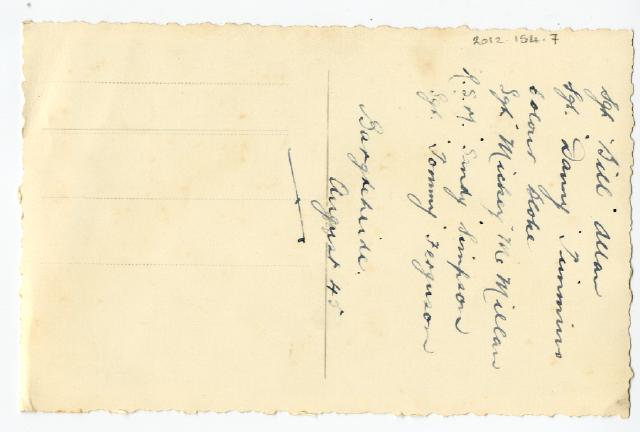 2012.154.7
Sgt. Bill Allan
Sgt. Danny Timmins
Colour Bloke
Sgt. Mickey McMillan
R.S.M. Sandy Simpson
Sgt. Tommy Ferguson
Bargteheide.
August 45